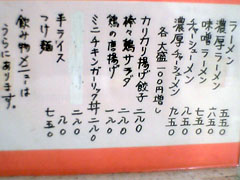 ラーメン 五五〇
濃厚ラーメン 六五〇
味噌ラーメン 六五〇
チャーシューメン 八五〇
濃厚チャーシューメン 九五〇
各大盛一〇〇円増し
カリカリ揚げ餃子 二八〇
棒々鶏サラダ 二八〇
鶏の唐揚げ 二八〇
ミニチキンガーリック丼 二八〇
半ライス 八〇
つけ麺 七五〇
飲み物メニューは
うらにあります。